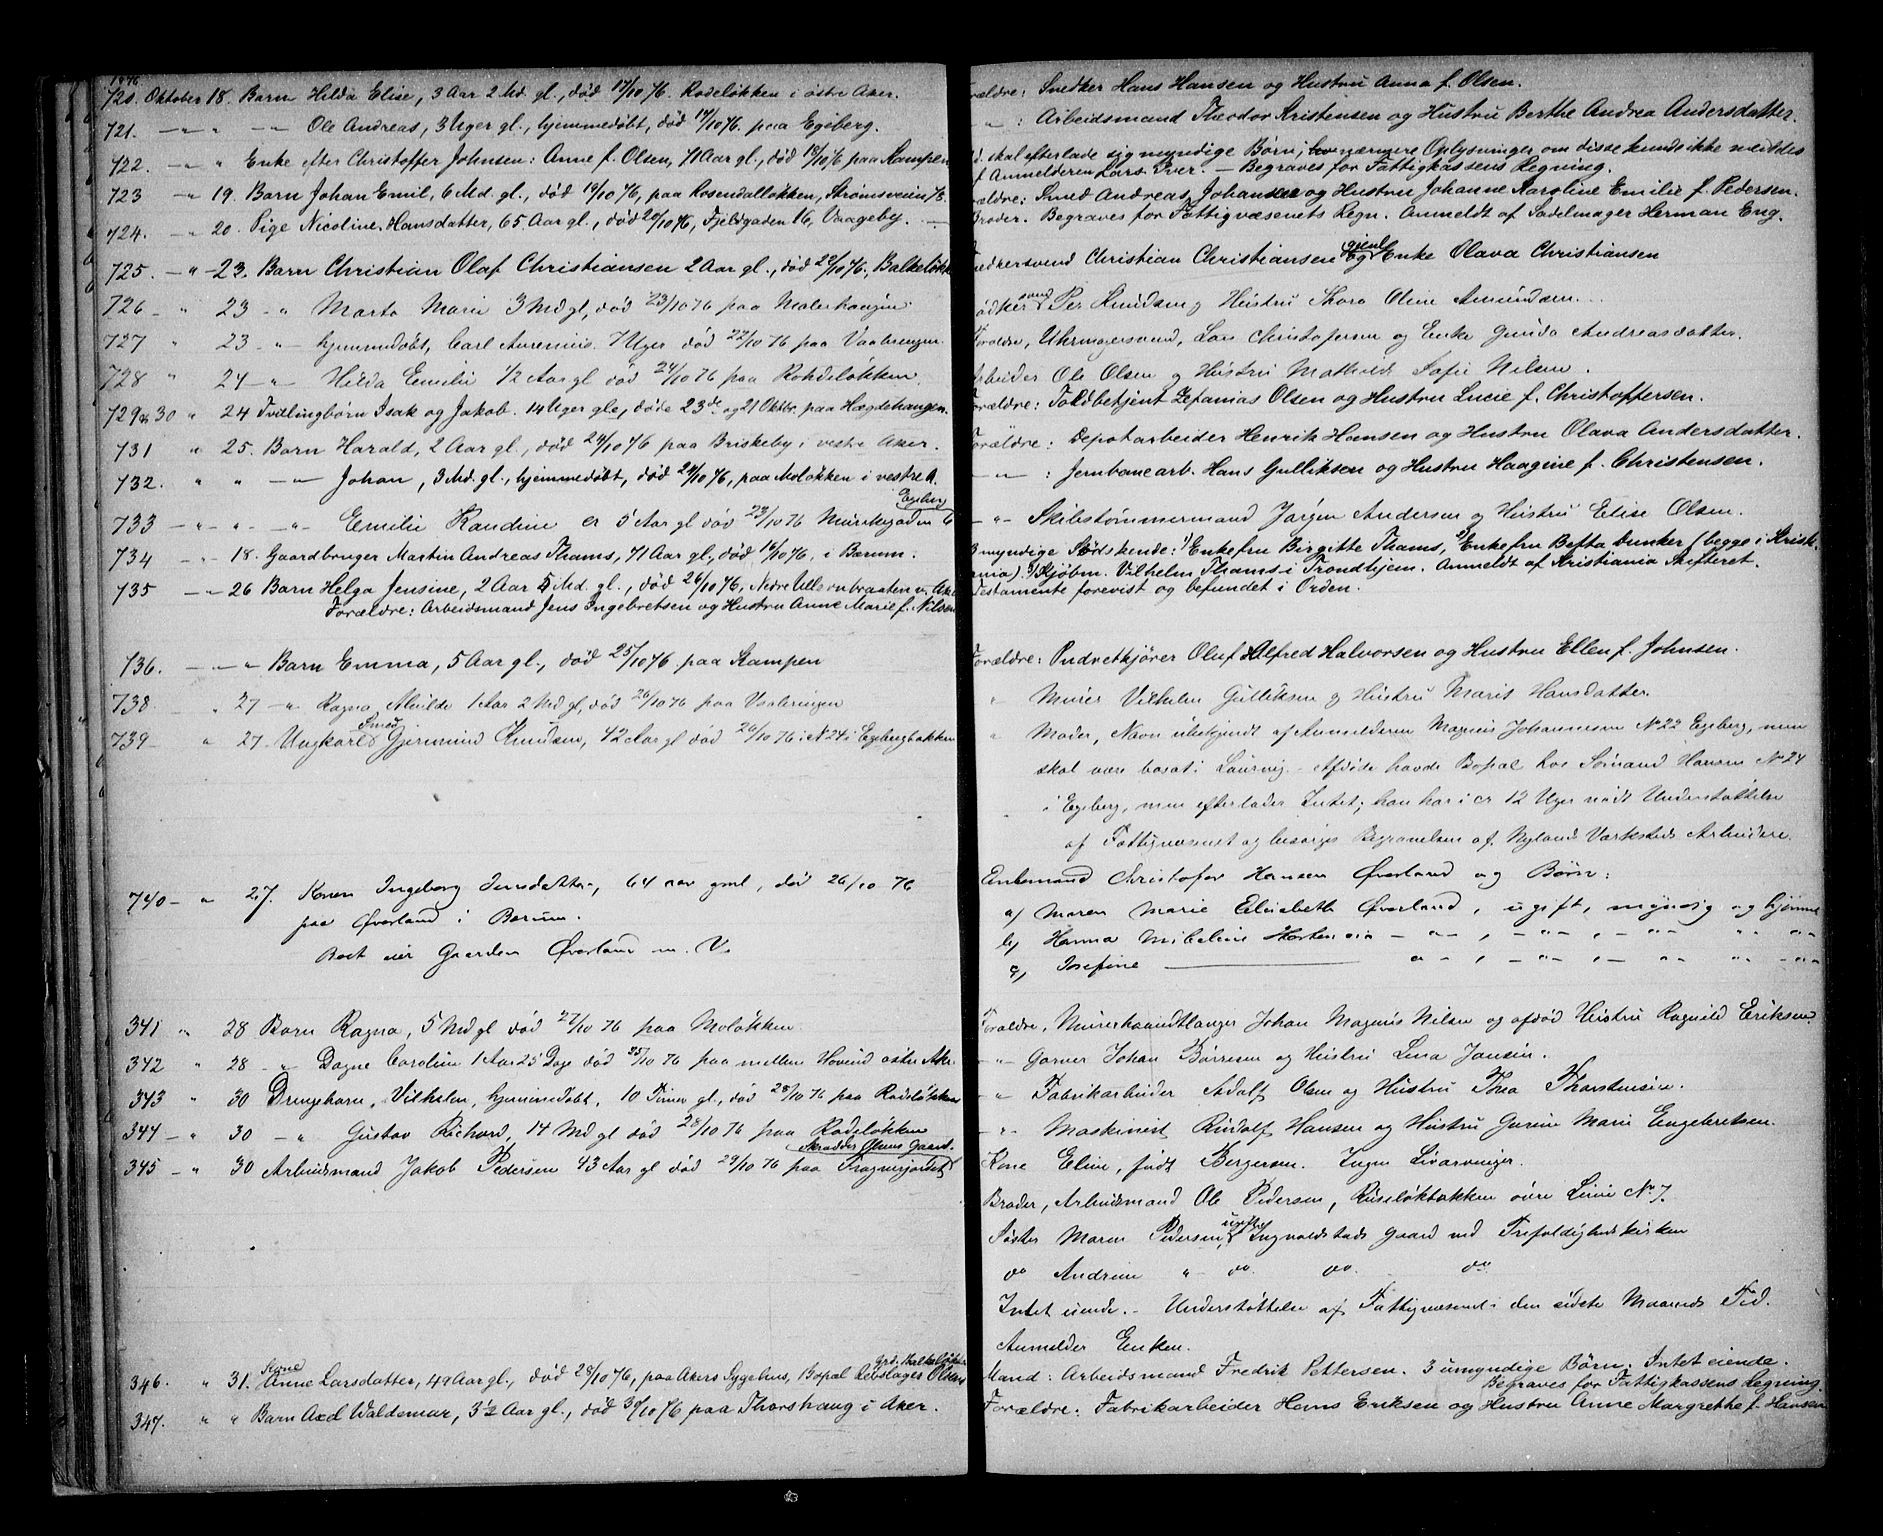 1876
720. Oktober 18. Barn Hilda Elise, 3 Aar 2 Md. gl., død 17/10 76. Rodeløkken i østre Aker.
Forældre: Snedker Hans Hansen og Hustru Anna f. Olsen.
721. — " " — " Ole Andreas, 3 Uger gl., hjemmedøbt, død 17/10 76. paa Egeberg.
— " — : Arbeidsmand Theodor Kristensen og Hustru Berthe Andrea Andersdatter.
722. — " " Enke efter Christoffer Johnsen: Anne f. Olsen, 71 Aar gl., død 18/10 76. paa Kampen
skal efterlade sig myndige Børn; nærmere Oplysninger om disse kunde ikke meddeles
af Anmelderen Lars Iver. — Begraves for Fattigkassens Regning.
723 — " 19. Barn Johan Emil, 6 Md. gl., død 19/10 76, paa Rosendalløkken, Strømsveien 78.
Forældre: Smed Andreas Johansen og Hustru Johanne Karoline Emilie f. Pedersen.
724. — " 20. Pige Nicoline Hansdatter, 65 Aar gl., død 20/10 76, Fjeldgaden 16, Vaageby. —
Broder. Begraves for Fattigvæsenets Regn. Anmeldt af Sadelmager Herman Eng.
725. — " — 23. Barn Christian Olaf Christiansen 2 Aar gl., død 22/10 76, Balkeløkk
Snedkersvend Christian Christiansen Enke Olava Christiansen
726 — " 23 — " Marta Marie 3 Md gl, død 23/10 76 paa Malerhaugen
svend Per Knudsen og Hustru Thora Oline Amundsen.
727 " 23 — " hjemmedøbt, Carl Aurenius. 7 Uger død 22/10 76 paa Vaalerengen.
Forældre, Uhrmagersvend, Lars Christofersen og Enke Gunda Andreasdatter.
728 " 24 — " Hilda Emilie 1/2 Aar gl død 24/10 76 paa Rohdeløkken.
Arbeider Ole Olsen og Hustru Mathea Sofie Nilsen.
729 & 30 " 24 Tvillingbørn Isak og Jakob. 14 Uger gle, døde 23de og 21 Oktbr. paa Hægdehaugen.
Forældre: Toldbetjent Zefanias Olsen og Hustru Lucie f. Christoffersen.
731 " 25. Barn Harald, 2 Aar gl., død 24/10 76 paa Briskeby i vestre Aker.
Forældre: Depotarbeider Henrik Hansen og Hustru Olava Andersdatter.
732. " " — " Johan, 3 Md. gl., hjemmedøbt, død 24/10 76, paa Moløkken i vestre A.
— " — : Jernbanearb. Hans Gulliksen og Hustru Haagine f. Christensen.
733 — " — " — " Emilie Randine er 5 Aar gl død 23/10 76 Munkegaden 6 Egeberg
— " — Skibstømmermand Jørgen Andersen og Hustru Elise Olsen.
734 — " 18. Gaardbruger Martin Andreas Thams, 71 Aar gl., død 16/10 76, i Bærum.
3 myndige Sødskende: 1) Enkefru Birgitte Thams, 2) Enkefru Betta Dunker (begge i Kristi-
ania). 3) Kjøbm. Vilhelm Thams i Trondhjem. Anmeldt af Kristiania Skifteret.
Testamente forevist og befundet i Orden.
735 — " 26 Barn Helga Jensine, 2 Aar 5 Md. gl., død 26/10 76, Nedre Ullevnbraaten v. Ake
Forældre: Arbeidsmand Jens Ingebretsen og Hustru Anne Marie f. Nilsen
736. — " — " Barn Emma, 5 Aar gl., død 25/10 76 paa Kampen
Forældre: Pudretkjører Oluf Alfred Halvorsen og Hustru Ellen f. Johnsen.
738 " 27 — " Ragna Alvilde 1 Aar 2 Md gl, død 26/10 76 paa Vaaleringen
" Murer Vilhelm Gulliksen og Hustru Marit Hansdatter.
739 — " 27. Ungkarl Smed Gjermund Knudsen, 42 Aar gl død 26/10 76 i N 24 i Egebergbakken
" Moder, Navn ubekjendt af Anmelderen Magnus Johannesen No 22 Egeberg, men
skal være bosat i Laurvig. — Afdøde havde Bopæl hos Sømand Hansen No 24
i Egeberg, men efterlader Intet; han har i cr 12 Uger nydt Understøttelse
af Fattigvæsenet og besørges Begravelsen af Nylands Værksteds Arbeidere.
740 — " 27. Konen Ingeborg Jensdatter, 64 aar gml, død 26/10 76
paa Øverland i Berum.
Boet eier Gaarden Øverland m. V.
Enkemand Christofer Hansen Øverland og Børn:
a) Maren Marie Elisabeth Øverland, ugift, myndig og hjemme
b) Hanna Mikeline Hortensia — " — , — " — , — " — " "
c) Josefine — " — , — " — , — " — " "
341 " 28 Barn Ragna, 5 Md gl død 27/10 76 paa Moløkken
Forældre, Murerhaandtlanger Johan Magnus Nilsen og afdød Hustru Ragnild Eriksen.
342 " 28 — " Dagne Caroline 1 Aar 25 Dage død 25/10 76 paa mellem Hovind øster Aker
— " — Garver Johan Børresen og Hustru Lena Jansen.
343 " 30 Drengebarn, Vilhelm, hjemmedøbt, 10 Timer gl., død 28/10 76 paa Rodeløkken
— " — Fabrikarbeider Adolf Olsen og Hustru Thea Thorstensen.
344 — " 30 — " Gustav Richard, 14 Md gl død 28/10 76 paa Rodeløkken
— " — Maskinist Rudolf Hansen og Hustru Gurine Marie Engebretsen.
345 — " 30 Arbeidsmand Jakob Pedersen 43 Aar gl død 29/10 76 paa Frognerjordet Skrædder Olsens Gaard.
Kone Eline, født Bergersen. Ingen Livarvinger.
Broder, Arbeidsmand Ole Pedersen, Ruseløkbakken øvre Linie No 7.
Søster Maren Pedersen, ugift, Ingvaldstads Gaard ved Trefoldighedskirken
do Andrine " do. do. do.
Intet eiende. — Understøttelse af Fattigvæsenet i den sidste Maaneds Tid.
Anmelder Enken.
346. " 31. Kone Anne Larsdatter, 49 Aar gl., død 28/10 76, paa Akers Sygehus, Bopæl Rebslager Olsens Grd. Balkeløkken
Mand: Arbeidsmand Fredrik Pettersen. 3 umyndige Børn. Intet eiende.
Begraves for Fattigkassens Regning.
347. " " Barn Axel Valdemar, 3 1/2 Aar gl., død 30/10 76 paa Thorshaug i Aker.
Forældre: Fabrikarbeider Hans Eriksen og Hustru Anne Margrethe f. Hansen